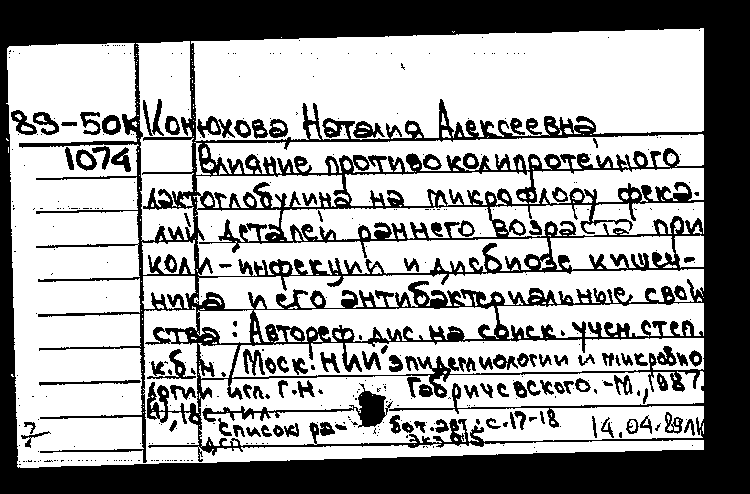 89-50к Конюхова, Наталия Алексеевна
1074 Влияние противоколипротейного
лактоглобулина на микрофлору фека-
лий деталей раннего возраста при
коли-инфекции и дисбиозе кишеч-
ника и его антибактериальные свой
ства: Автореф. дис. на соиск. учен. степ.
к.б.н. / Моск. НИИ эпидемиологии и микробио
логии им. Г.Н. Габричевского. -М., 1987.
18 с. ил.
Список ра- бот. авт.: с. 17-18
дсп экз 14.04.89